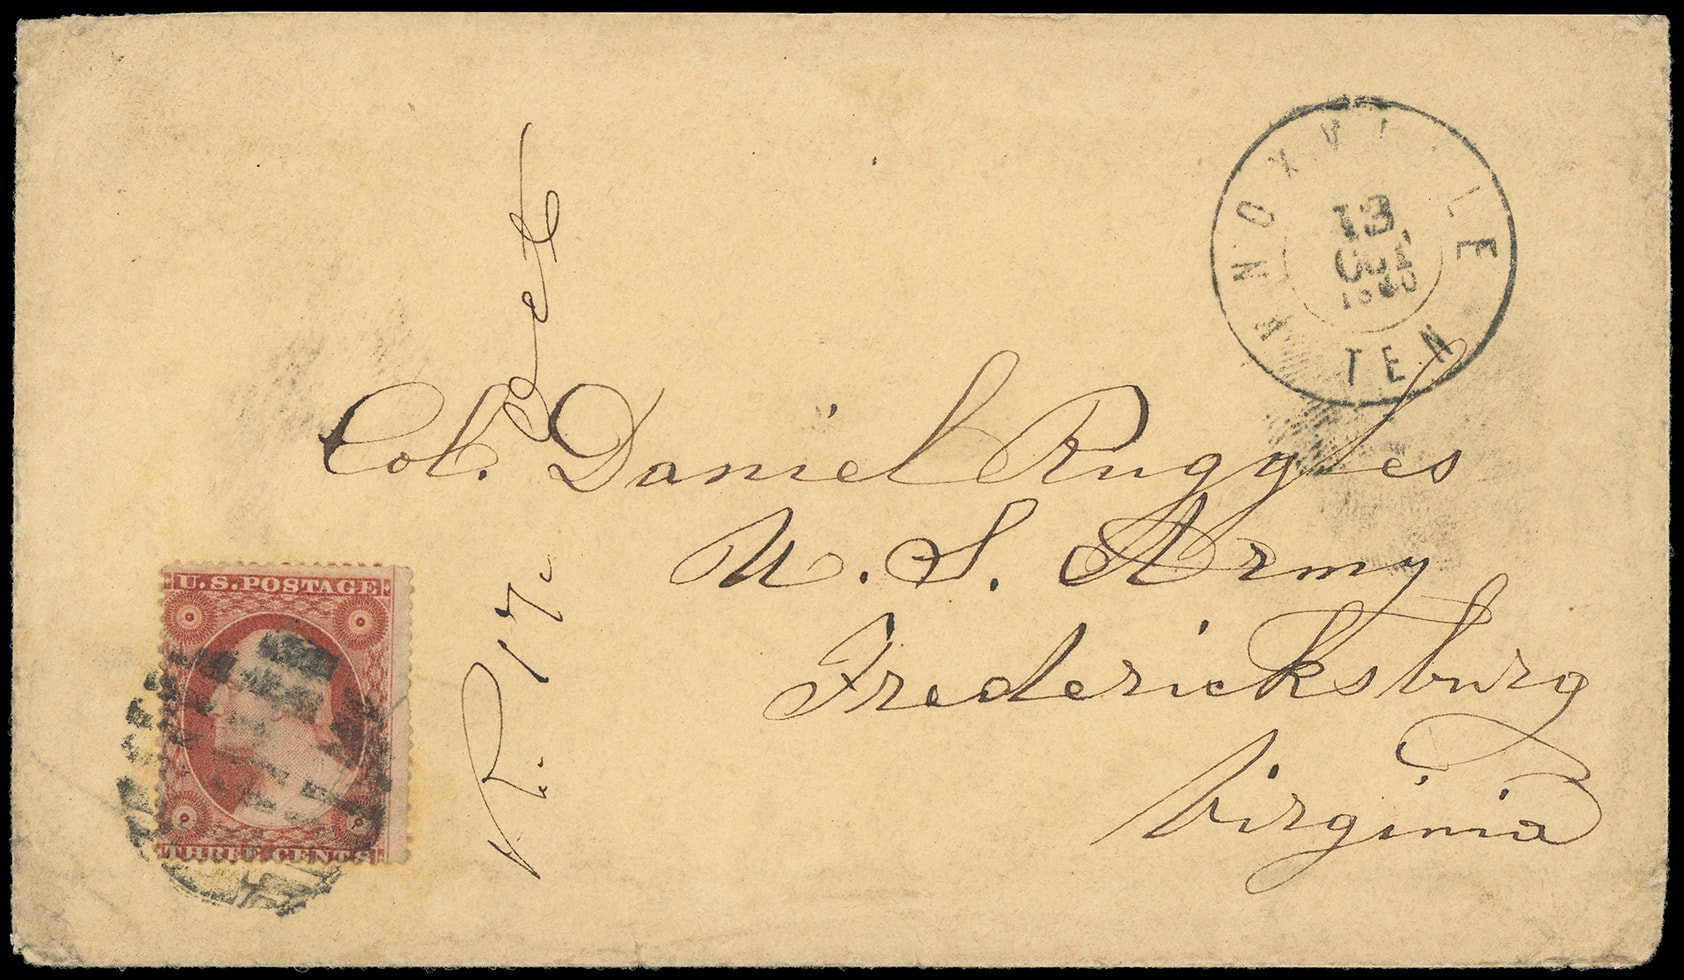 KNOXVILLE
13
OCT
1860
TEN
Col. Daniel Ruggles
U. S. Army
Fredericksburg
Virginia
R. 17. Oct
U.S. POSTAGE
THREE CENTS